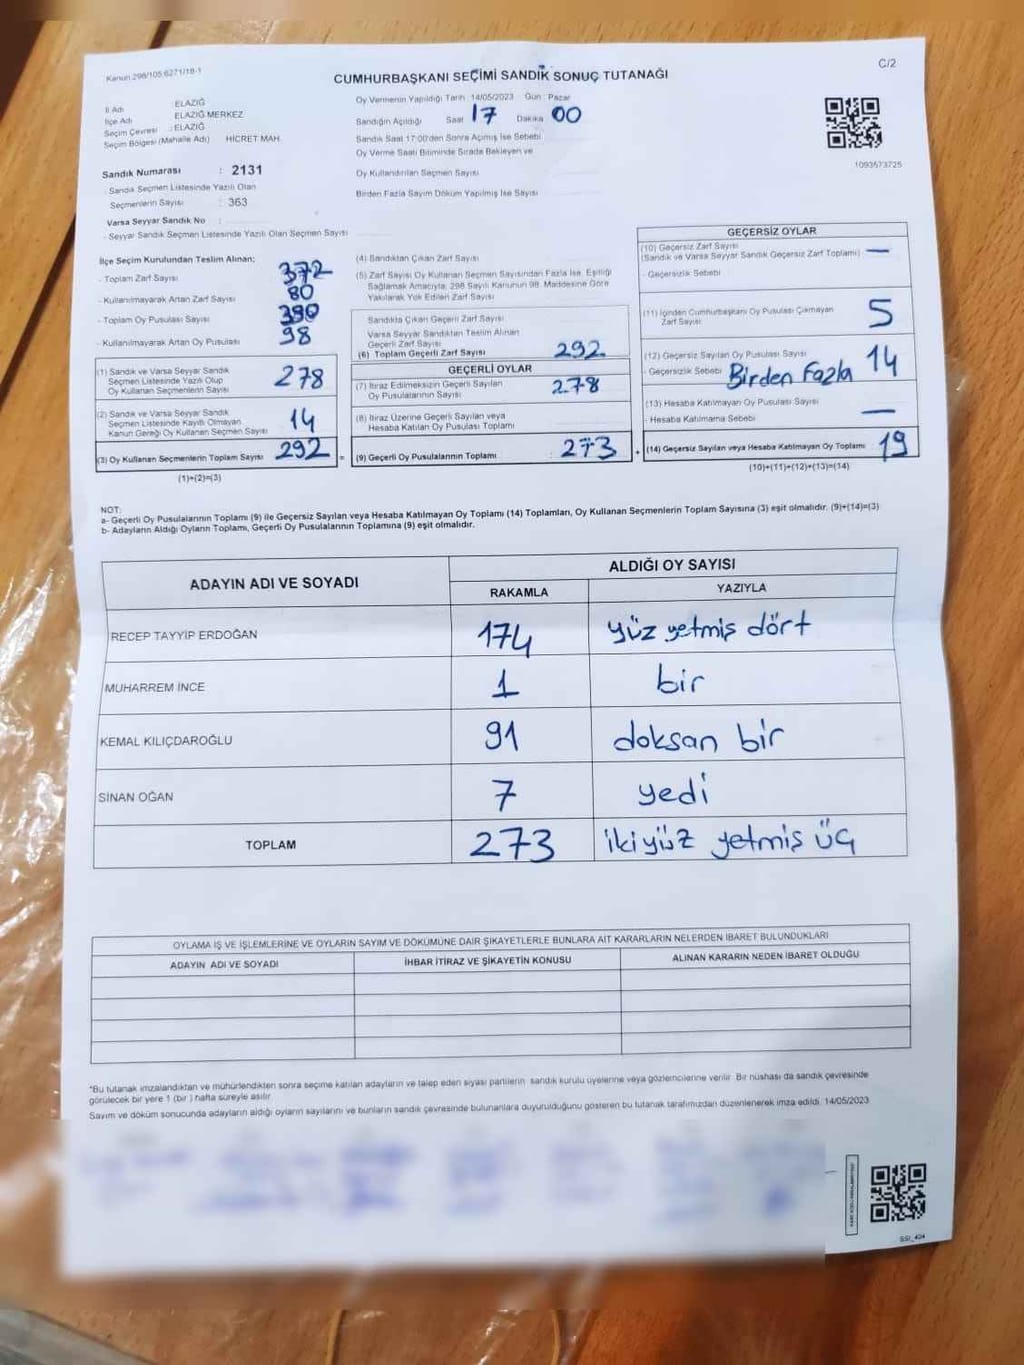 Kanun 298/105 6271/18-1
C/2
CUMHURBAŞKANI SEÇİMİ SANDIK SONUÇ TUTANAĞI
İl Adı ELAZIĞ
İlçe Adı ELAZIĞ MERKEZ
Seçim Çevresi : ELAZIĞ
Seçim Bölgesi (Mahalle Adı) HİCRET MAH.
Sandık Numarası : 2131
- Sandık Seçmen Listesinde Yazılı Olan
Seçmenlerin Sayısı : 363
Varsa Seyyar Sandık No :
- Seyyar Sandık Seçmen Listesinde Yazılı Olan Seçmen Sayısı
Oy Vermenin Yapıldığı Tarih : 14/05/2023 Gün : Pazar
Sandığın Açıldığı Saat 17 Dakika 00
Sandık Saat 17:00'den Sonra Açımış İse Sebebi
Oy Verme Saati Bitiminde Sırada Bekleyen ve
Oy Kullandırılan Seçmen Sayısı
Birden Fazla Sayım Döküm Yapılmış İse Sayısı
1093573725
İlçe Seçim Kurulundan Teslim Alınan;
- Toplam Zarf Sayısı 372
- Kullanılmayarak Artan Zarf Sayısı 80
- Toplam Oy Pusulası Sayısı 390
- Kullanılmayarak Artan Oy Pusulası 98
(1) Sandık ve Varsa Seyyar Sandık
Seçmen Listesinde Yazılı Olup
Oy Kullanan Seçmenlerin Sayısı 278
(2) Sandık ve Varsa Seyyar Sandık
Seçmen Listesinde Kayıtlı Olmayan
Kanun Gereği Oy Kullanan Seçmen Sayısı 14
(3) Oy Kullanan Seçmenlerin Toplam Sayısı 292 =
(1)+(2)=(3)
(4) Sandıktan Çıkan Zarf Sayısı
(5) Zarf Sayısı Oy Kullanan Seçmen Sayısından Fazla İse, Eşitliği
Sağlamak Amacıyla, 298 Sayılı Kanunun 98. Maddesine Göre
Yakılarak Yok Edilen Zarf Sayısı
Sandıkta Çıkan Geçerli Zarf Sayısı
Varsa Seyyar Sandıktan Teslim Alınan
Geçerli Zarf Sayısı
(6) Toplam Geçerli Zarf Sayısı 292
GEÇERLİ OYLAR
(7) İtiraz Edilmeksizin Geçerli Sayılan
Oy Pusulalarının Sayısı 278
(8) İtiraz Üzerine Geçerli Sayılan veya
Hesaba Katılan Oy Pusulası Toplamı
(9) Geçerli Oy Pusulalarının Toplamı : 273 +
GEÇERSİZ OYLAR
(10) Geçersiz Zarf Sayısı
(Sandık ve Varsa Seyyar Sandık Geçersiz Zarf Toplamı) —
- Geçersizlik Sebebi
(11) İçinden Cumhurbaşkanı Oy Pusulası Çıkmayan
Zarf Sayısı 5
(12) Geçersiz Sayılan Oy Pusulası Sayısı 14
- Geçersizlik Sebebi Birden Fazla
(13) Hesaba Katılmayan Oy Pusulası Sayısı —
- Hesaba Katılmama Sebebi
(14) Geçersiz Sayılan veya Hesaba Katılmayan Oy Toplamı 19
(10)+(11)+(12)+(13)=(14)
NOT:
a- Geçerli Oy Pusulalarının Toplamı (9) ile Geçersiz Sayılan veya Hesaba Katılmayan Oy Toplamı (14) Toplamları, Oy Kullanan Seçmenlerin Toplam Sayısına (3) eşit olmalıdır. (9)+(14)=(3)
b- Adayların Aldığı Oyların Toplamı, Geçerli Oy Pusulalarının Toplamına (9) eşit olmalıdır.
ADAYIN ADI VE SOYADI
ALDIĞI OY SAYISI
RAKAMLA YAZIYLA
RECEP TAYYİP ERDOĞAN 174 yüz yetmiş dört
MUHARREM İNCE 1 bir
KEMAL KILIÇDAROĞLU 91 doksan bir
SİNAN OĞAN 7 yedi
TOPLAM 273 ikiyüz yetmiş üç
OYLAMA İŞ VE İŞLEMLERİNE VE OYLARIN SAYIM VE DÖKÜMÜNE DAİR ŞİKAYETLERLE BUNLARA AİT KARARLARIN NELERDEN İBARET BULUNDUKLARI
ADAYIN ADI VE SOYADI İHBAR İTİRAZ VE ŞİKAYETİN KONUSU ALINAN KARARIN NEDEN İBARET OLDUĞU
*Bu tutanak imzalandıktan ve mühürlendikten sonra seçime katılan adayların ve talep eden siyasi partilerin sandık kurulu üyelerine veya gözlemcilerine verilir. Bir nüshası da sandık çevresinde
görülecek bir yere 1 (bir ) hafta süreyle asılır.
Sayım ve döküm sonucunda adayların aldığı oyların sayılarını ve bunların sandık çevresinde bulunanlara duyurulduğunu gösteren bu tutanak tarafımızdan düzenlenerek imza edildi. 14/05/2023
SSI_404